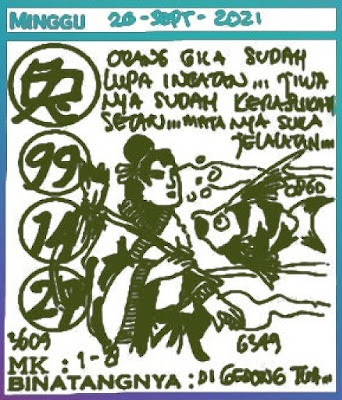 MINGGU 26-SEPT-2021
ORANG GILA SUDAH
LUPA INGATAN... TIWA
NYA SUDAH KEMASUKAN
SETAN... MATA NYA SUKA
JELALATAN...
兔
99
14
3609
6349
MK : 1-8
BINATANGNYA : DI GEDONG TUA...